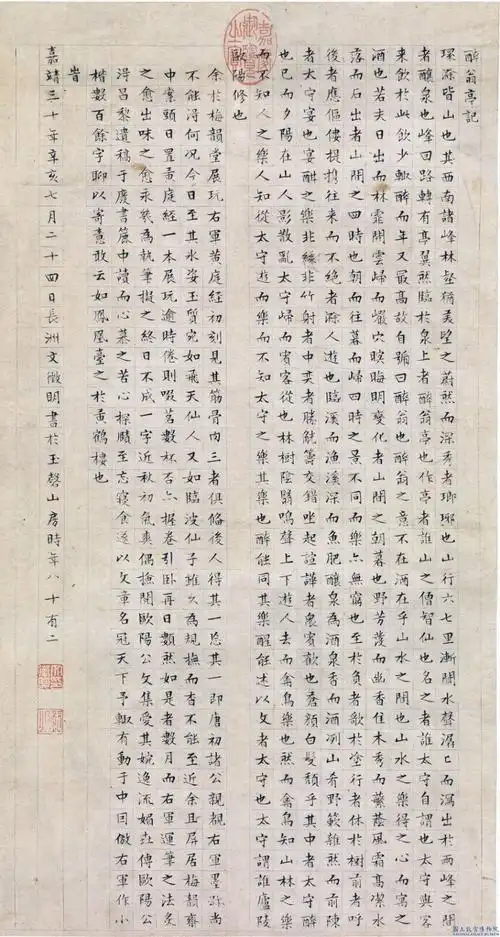 醉翁亭記
環滁皆山也其西南諸峰林壑猶美望之蔚然而深秀者瑯琊也山行六七里漸聞水聲潺〻而瀉出於西峰之間
者釀泉也峰回路轉有亭翼然臨於泉上者醉翁亭也作亭者誰山之僧智仙也名之者誰太守自謂也太守與客
來飲於此飲少輒醉而年又最高故自號曰醉翁也醉翁之意不在酒在乎山水之間也山水之樂得之心而寓之
酒也若夫日出而林霏開雲歸而巖穴暝晦明變化者山間之朝暮也野芳發而幽香佳木秀而蘩蔭風霜高潔水
落而石出者山間之四時也朝而往暮而歸四時之景不同而樂亦無窮也至於負者歌於塗行者休於樹前者呼
後者應傴僂提攜往來而不絕者滁人遊也臨溪而漁溪深而魚肥釀泉為酒泉香而酒冽山肴野簌雜然而前陳
者太守宴也宴酣之樂非絲非竹射者中奕者勝觥籌交錯坐起諠譁者眾賓歡也蒼顏白髮頹乎其中者太守醉
也已而夕陽在山人影散亂太守歸而賓客從也林樹陰翳鳴聲上下遊人去而禽鳥樂也然而禽鳥知山林之樂
而不知人之樂人知從太守遊而樂而不知太守之樂其樂也醉能同其樂醒能述以文者太守也太守謂誰廬陵
歐陽修也
余於梅韻堂展玩右軍黃庭經初刻見其筋骨肉三者俱備後人得其一忘其一即唐初諸公親覩右軍墨跡尚
不能得何況今日至其水姿玉質宛如飛天仙人又如臨波仙子雖久為規撫而杳不能至近余且屏居梅韻齋
中案頭日置黃庭經一本展玩逾時倦則啜茗數杯否亦握卷引臥再日數然如是者數月而右軍運筆之法灸
之愈出味之愈永幾為執筆擬之終日不成一字近秋初氣爽偶撿閱歐陽公文集愛其婉逸流媚盡傳歐陽公
得昌黎遺稿于廢書簏中讀而心慕之苦心探賾至忘寢食遂以文章名冠天下予輒有動于中因倣右軍作小
楷數百餘字聊以寄意敢云如鳳凰臺之於黃鶴樓也
旹
嘉靖三十年辛亥七月二十四日長洲文徵明書於玉磬山房時年八十有二